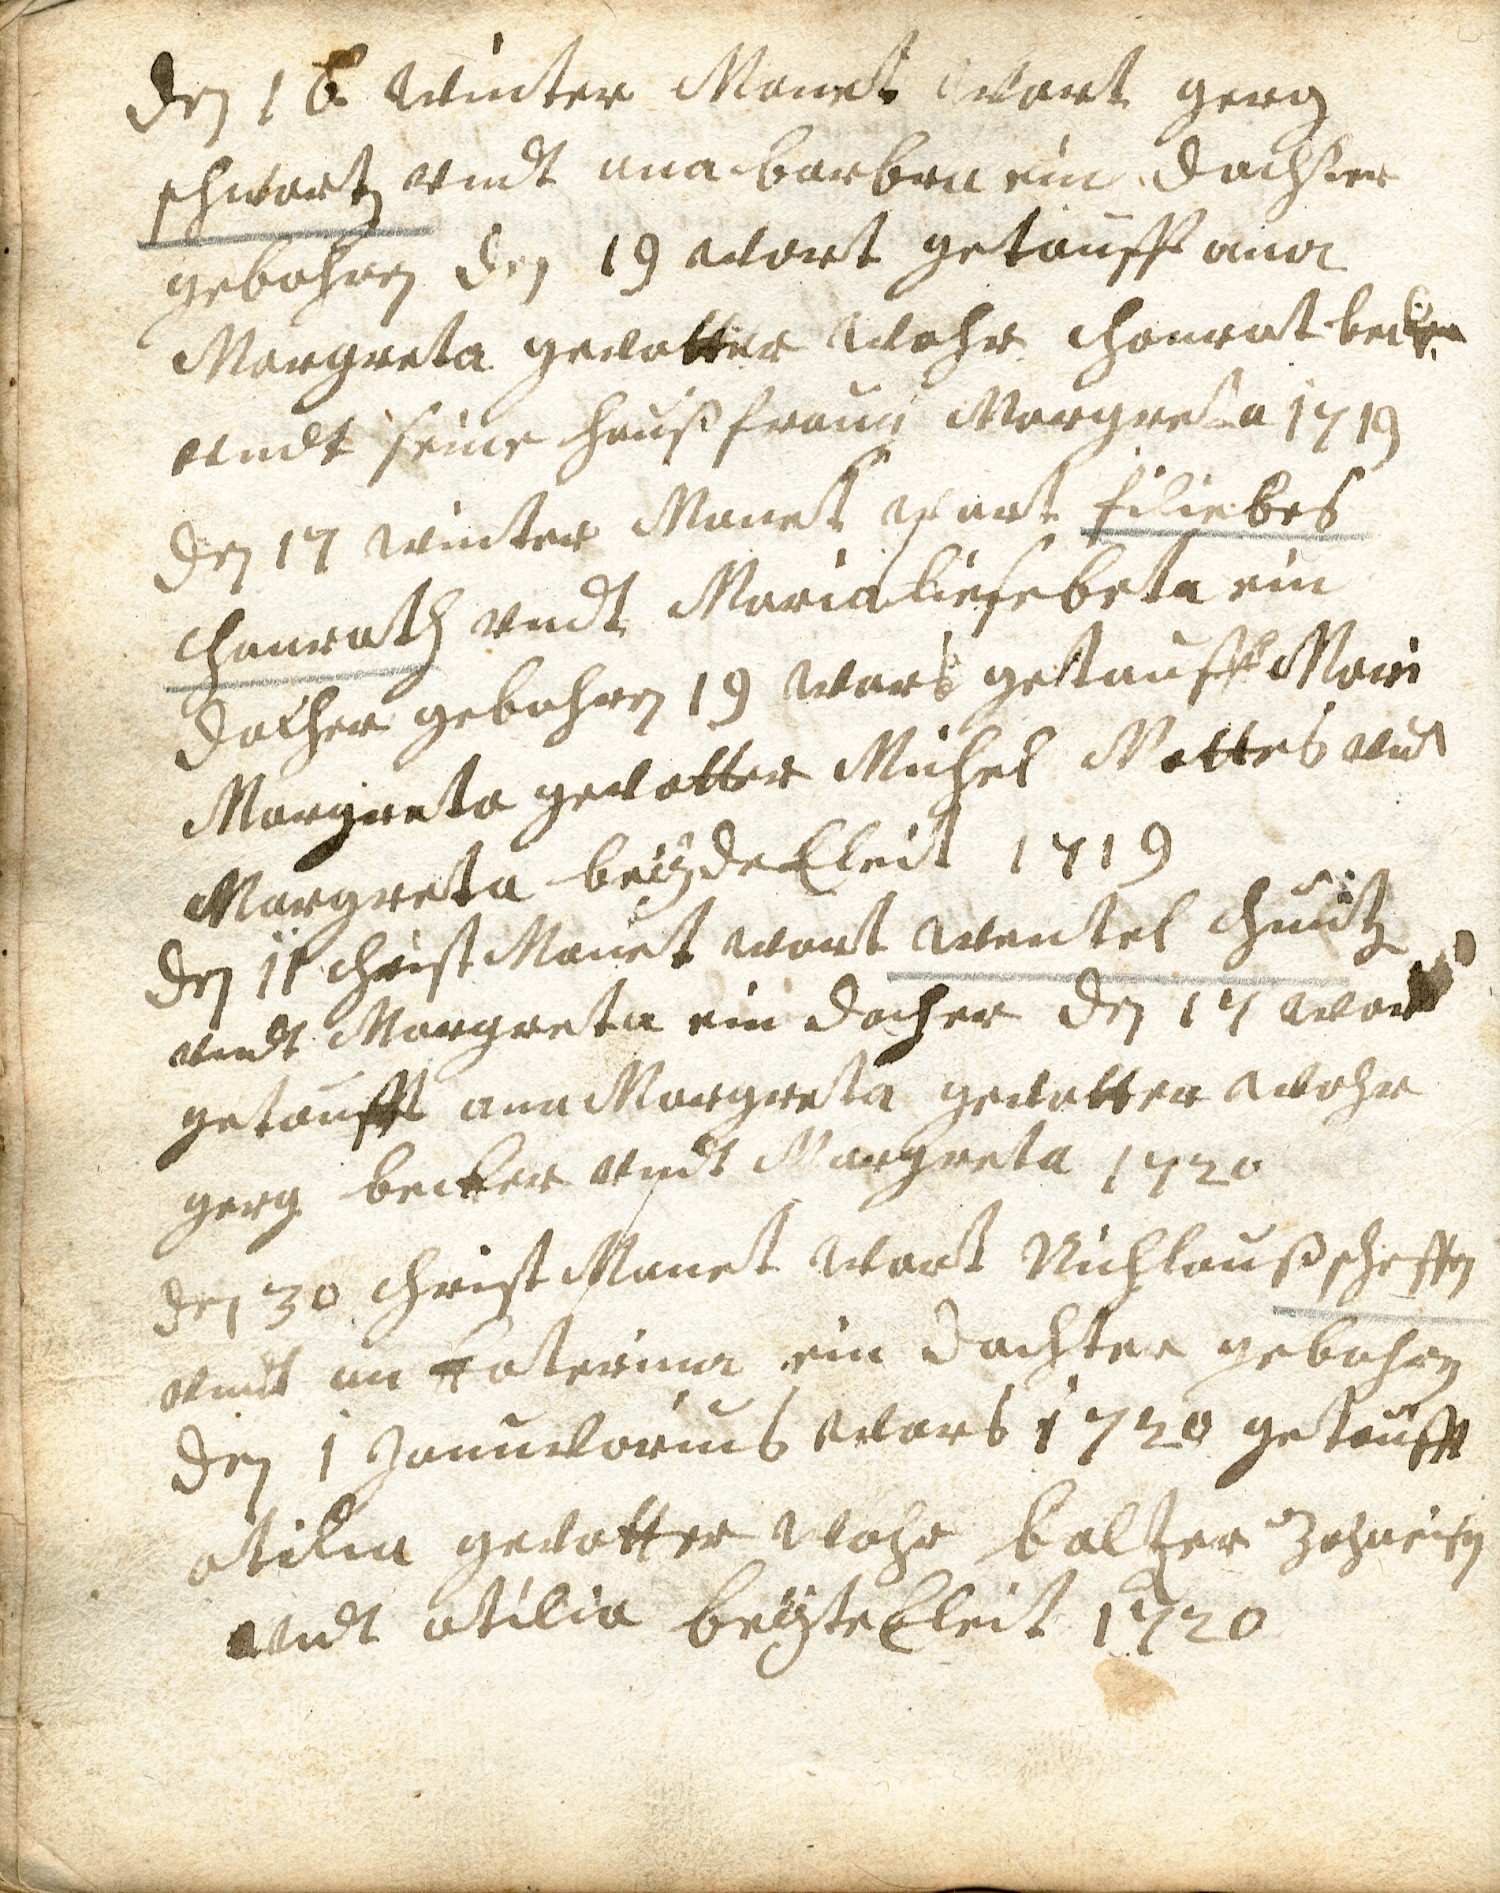 den 16 winter Monet wart gerg
schwartz vndt ana barbra ein dochter
gebohren den 19 wart getaufft ana
Margreta gevatter wahr chonrat becker
vndt seine haußfrauw Margreta 1719
den 17 winter Monet wart filiebes
chonrath vndt Maria liesebeta ein
docher gebohren 19 wars getaufft Mari
Margreta gevatter Michel Mattes vnd
Margreta beyde Eleit 1719
den 11 christ Monet wart wentel chuntz
vndt Margreta ein docher den 17 wart
getaufft ana Margreta gevatter wahr
gerg becker vndt Margreta 1720
den 30 christ Monet wart Nichlauß scheffer
vndt an katerina ein dochter gebohren
den 1 Januwarius wars 1720 getaufft
otilia gevatter wahr baltzer
vndt otilia beyte Eleit 1720